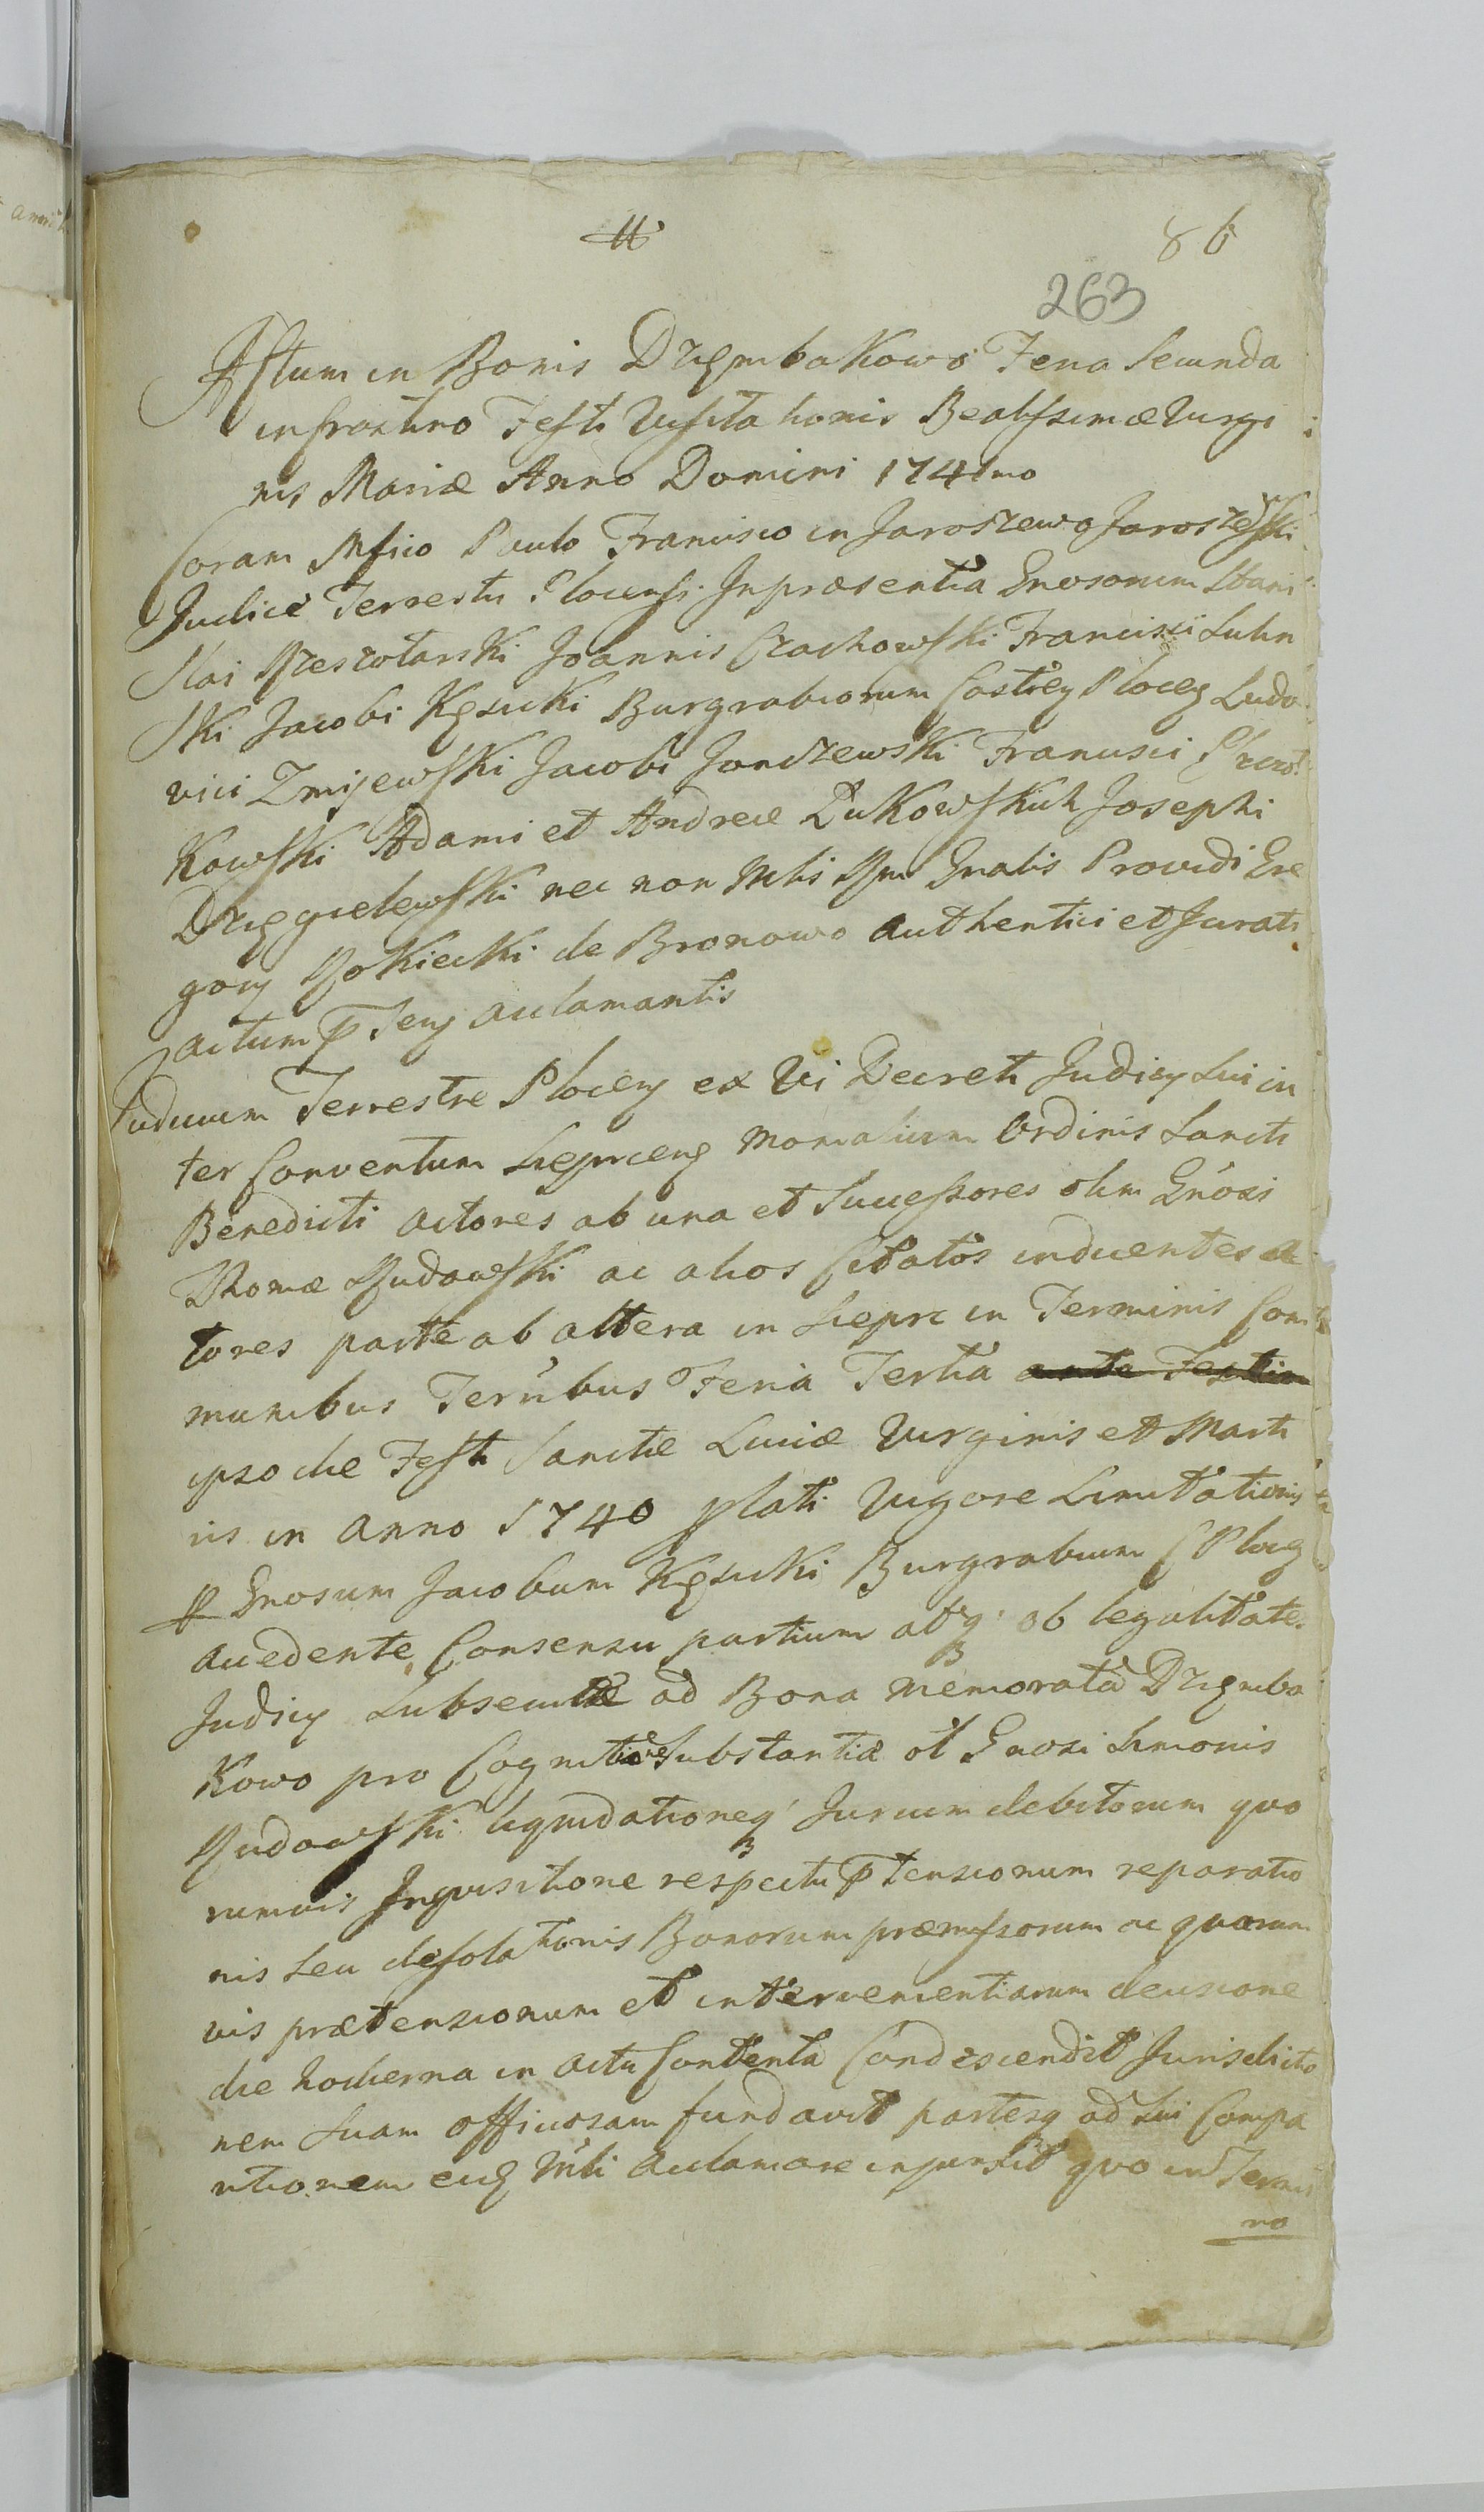 86
263
Actum in Bonis Drzęmbakowo Feria Secunda
in crastino Festi Visitationis Beatissimæ Virgi
nis Mariæ Anno Domini 1741mo
Coram Mfico Paulo Francisco in Jaroszewo Jaroszewski
Judice Terrestri Plocensi In præsentia Gnosorum Stani
slai Rzeszotarski Joannis Czachowski Francisci Luhn
ski Jacobi Kęsicki Burgrabiorum Castren Plocen Ludo
vici Zmijewski Jacobi Jonszewski Francisci
kowski Adami et Andreæ Dukowskich Josephi
Drzęgielewski nec non Mlis Rni Gnalis Providi Gre
gory Rokiecki de Bronowo authentici et Jurati
actum p̄sens aclamantis
Judicium Terrestre Plocen ex Vi Decreti Judicy sui in
ter Conventum Sieprcens Monialium Ordinis Sancti
Benedicti actores ab una et Successores olim Gnosi
Thomæ Rudowski ac alios Citatos inducentes ac
tores parte ab altera in Sieprc in Terminis Com
munibus Terribus Feria Tertia ante Festum
ipso die Festi Sanctæ Luciæ Virginis et Marti
ris in anno 1740 plati Vigore Limitationis
p Gnosum Jacobum Kęsicki Burgrabium C Plocen
accedente Consensu partium atq ob legalitate
Judicy Subsecutæ ad Bona memorata Drzęmba
kowo pro Cognitione Substantiæ ol Gnosi Simonis
Rudowski liquidationeq Jurium debitorum quo
rumvis Inquisitione respectu p̄tensionum reparatio
nis seu desolationis Bonorum præmissorum ac quarum
vis prætensionum et intervenientiarum decisione
die hodierna in actu Contenta Condescendit Jurisdictio
nem Suam officiosam fundavit partesq ad sui Compa
ritionem eidę Mli aclamare injunxit quo in Termi
no